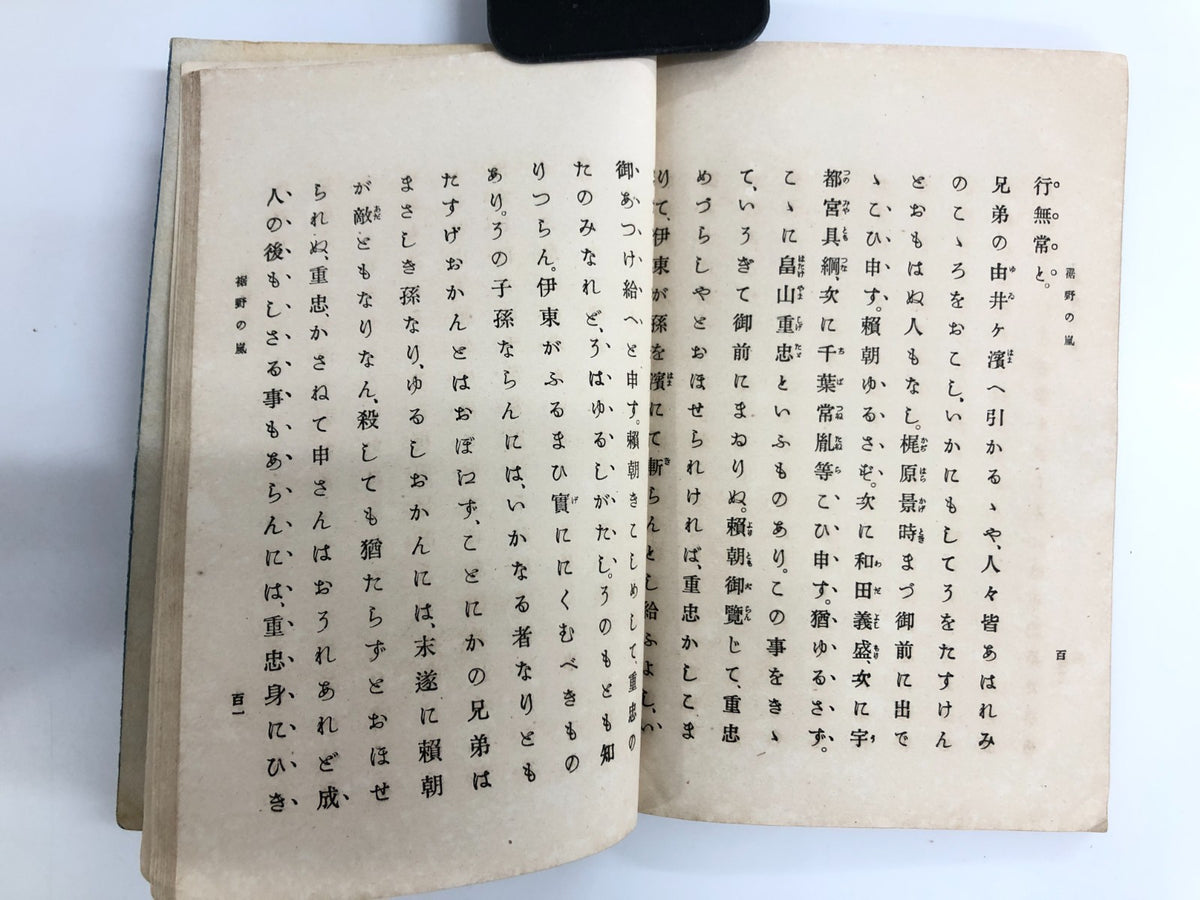 裾野の嵐
百
行無常と。
兄弟の由井ヶ濱へ引かるゝや、人々皆あはれみ
のこゝろをおこし、いかにもしてそをたすけん
とおもはぬ人もなし。梶原景時まづ御前に出で
ゝこひ申す。賴朝ゆるさず。次に和田義盛、次に宇
都宮具綱、次に千葉常胤等こひ申す。猶ゆるさず。
こゝに畠山重忠といふものあり。この事をきゝ
て、いそぎて御前にまゐりぬ。賴朝御覽じて、重忠
めづらしやとおほせられければ、重忠かしこま
りて、伊東が孫を濱にて斬らんとし給ふよし、い
御あつけ給へと申す。賴朝きこしめして、重忠の
たのみなれど、そはゆるしがたし。そのもとも知
りつらん。伊東がふるまひ實ににくむべきもの
あり。その子孫ならんには、いかなる者なりとも
たすけおかんとはおぼえず、ことにかの兄弟は
まさしき孫なり、ゆるしおかんには、末遂に賴朝
が敵ともなりなん、殺しても猶たらずとおほせ
られぬ、重忠、かさねて申さんはおそれあれど成
人の後もしさる事もあらんには、重忠身にひき
裾野の嵐
百一